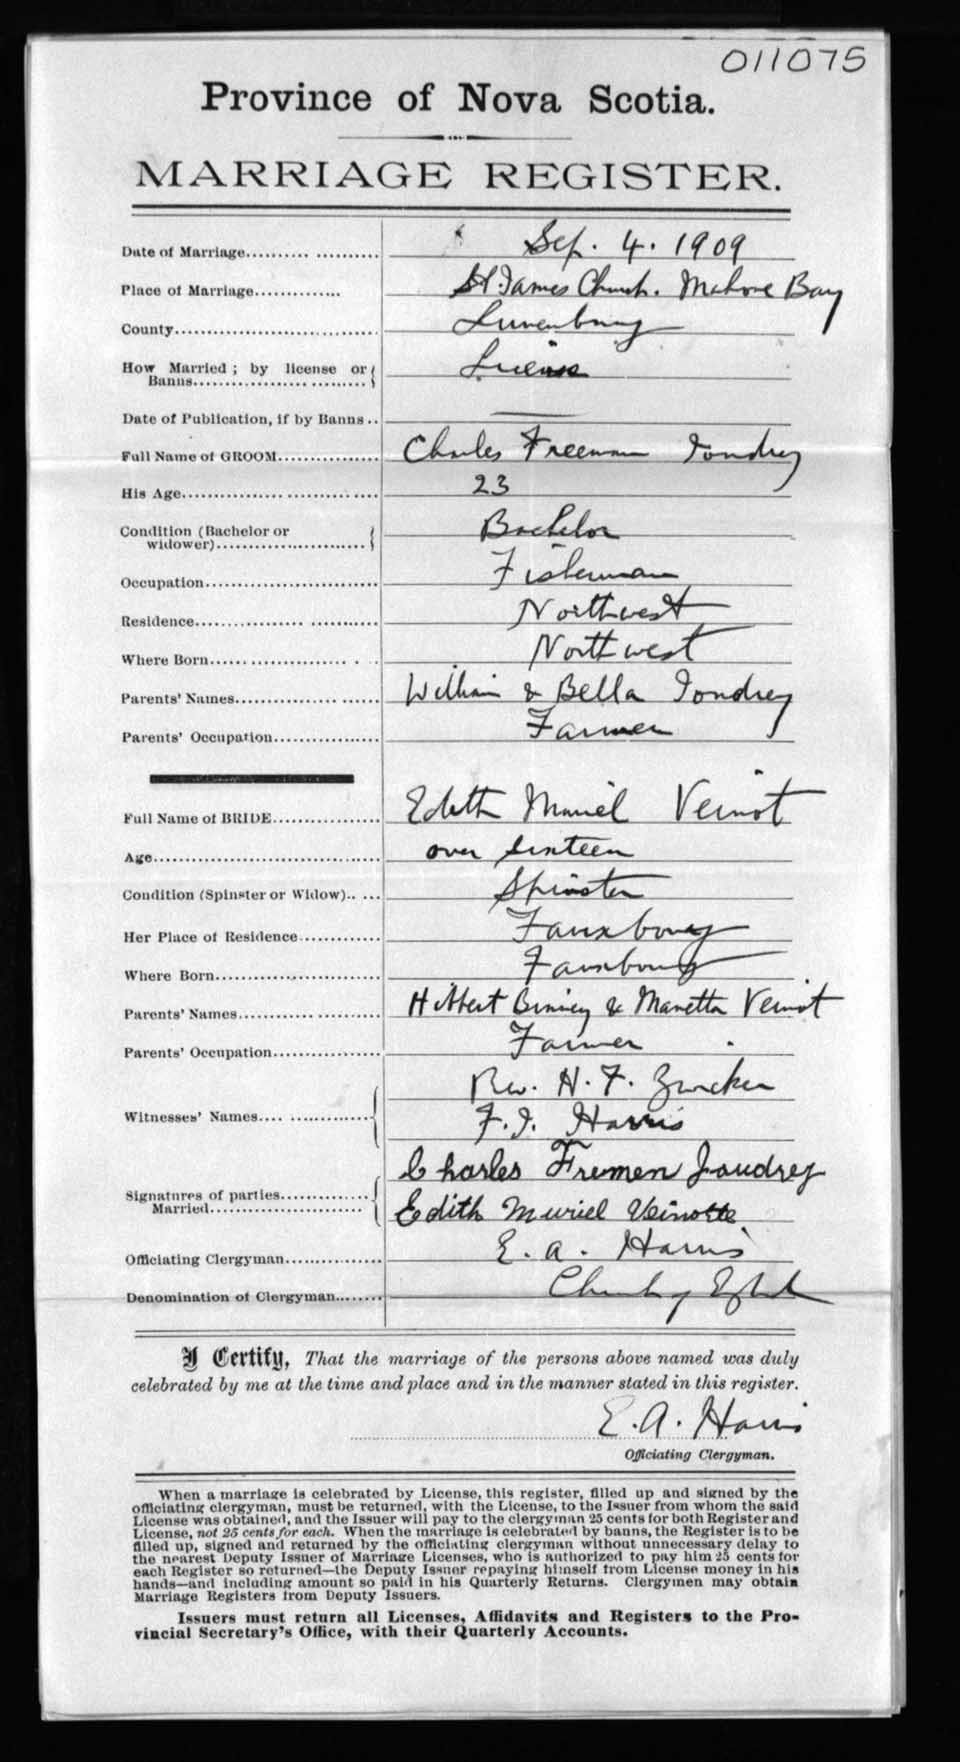 011075
Province of Nova Scotia.
MARRIAGE REGISTER.
Date of Marriage.......... ........... Sep. 4. 1909
Place of Marriage............. St. James Church. Mahone Bay
County............................... Lunenburg
How Married ; by license or
Banns.................. ......... License
Date of Publication, if by Banns .. —
Full Name of GROOM............... Charles Freeman Joudrey
His Age.................. ............... .... 23
Condition (Bachelor or
widower)....................... Bachelor
Occupation.......................... Fisherman
Residence................ ........... Northwest
Where Born..................... . . . Northwest
Parents' Names................ ...... William & Bella Joudrey
Parents' Occupation................ Farmer
Full Name of BRIDE................ Edith Muriel Veinot
Age.................................. over sixteen
Condition (Spinster or Widow).. ... Spinster
Her Place of Residence............. Fauxbourg
Where Born......................... Fauxbourg
Parents' Names........... ........... Hibbert Binney & Manetta Veinot
Parents' Occupation................ Farmer
Witnesses' Names.... ............... Rev. H. F. Zwicker
F. J. Harris
Signatures of parties.............
Married....................... Charles Fremen Joudrey
Edith Muriel Veinotte
Officiating Clergyman............... E. A. Harris
Denomination of Clergyman........ Church of Eglnd
I Certify, That the marriage of the persons above named was duly
celebrated by me at the time and place and in the manner stated in this register.
E. A. Harris
Officiating Clergyman.
When a marriage is celebrated by License, this register, filled up and signed by the
officiating clergyman, must be returned, with the License, to the Issuer from whom the said
License was obtained, and the Issuer will pay to the clergyman 25 cents for both Register and
License, not 25 cents for each. When the marriage is celebrated by banns, the Register is to be
filled up, signed and returned by the officiating clergyman without unnecessary delay to
the nearest Deputy Issuer of Marriage Licenses, who is authorized to pay him 25 cents for
each Register so returned—the Deputy Issuer repaying himself from License money in his
hands—and including amount so paid in his Quarterly Returns. Clergymen may obtain
Marriage Registers from Deputy Issuers.
Issuers must return all Licenses, Affidavits and Registers to the Pro-
vincial Secretary's Office, with their Quarterly Accounts.